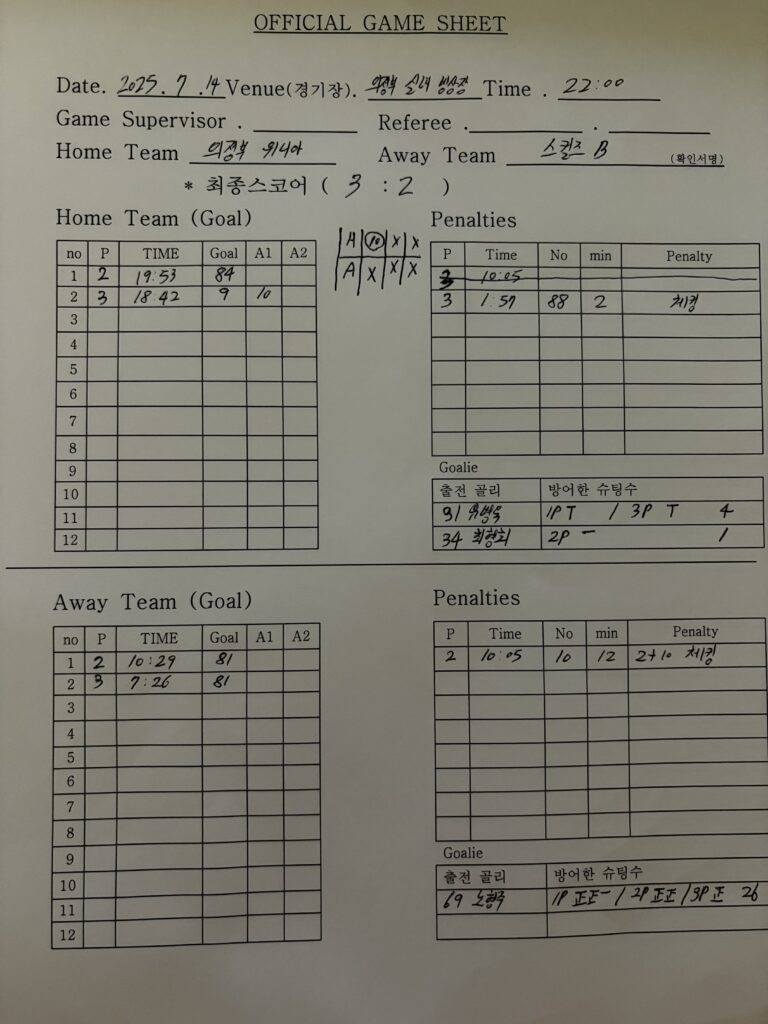 OFFICIAL GAME SHEET
Date. 2025. 7 .14 Venue(경기장). 의정부 실내 빙상장 Time . 22:00
Game Supervisor . Referee . .
Home Team 의정부 위니아 Away Team 스컬즈 B (확인서명)
* 최종스코어 ( 3 : 2 )
Home Team (Goal)
H 10 X X
A X X X
no P TIME Goal A1 A2
1 2 19:53 84
2 3 18:42 9 10
3
4
5
6
7
8
9
10
11
12
Penalties
P Time No min Penalty
10:05
3 1:57 88 2 체킹
Goalie
출전 골리 방어한 슈팅수
31 1P T / 3P T 4
34 2P 一 1
Away Team (Goal)
no P TIME Goal A1 A2
1 2 10:29 81
2 3 7:26 81
3
4
5
6
7
8
9
10
11
12
Penalties
P Time No min Penalty
2 10:05 10 12 2+10 체킹
Goalie
출전 골리 방어한 슈팅수
69 노형주 1P 正正一 / 2P 正正 / 3P 正 26